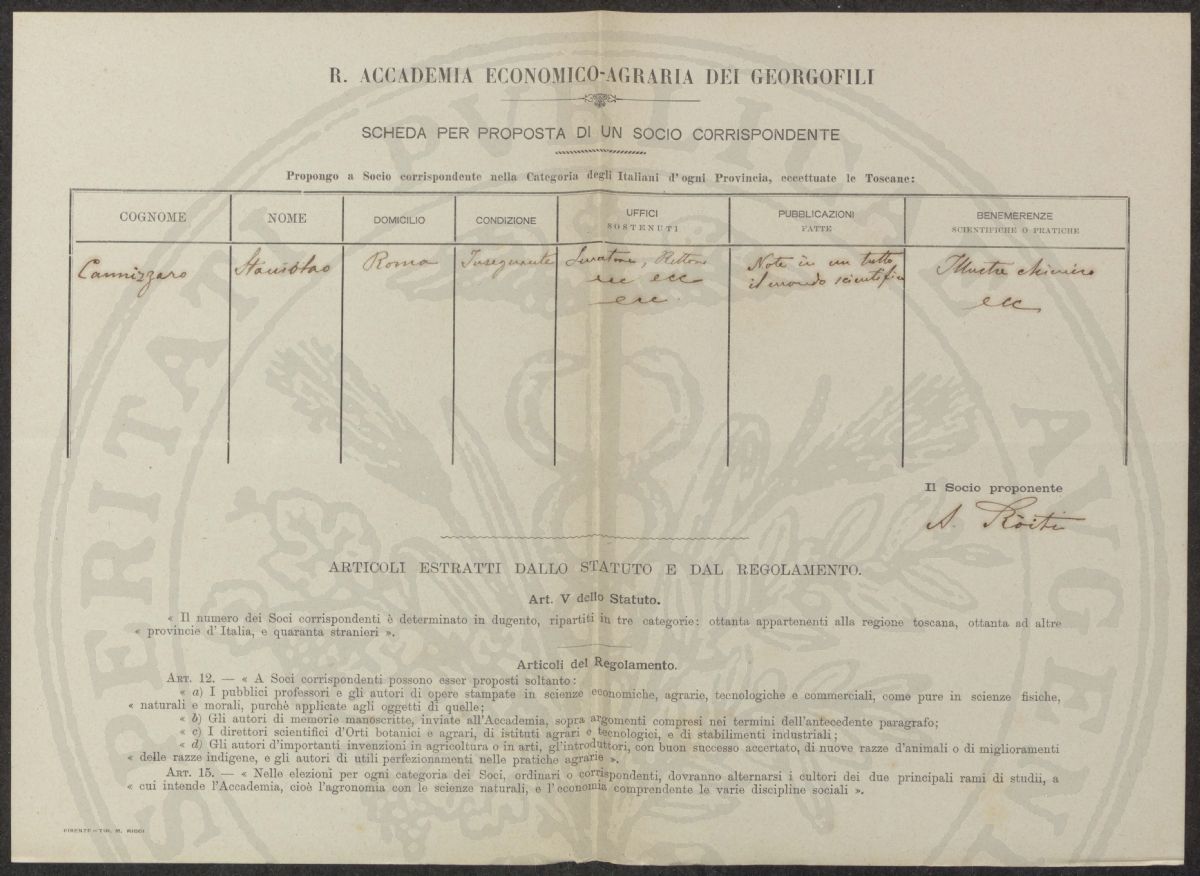 R. ACCADEMIA ECONOMICO-AGRARIA DEI GEORGOFILI
SCHEDA PER PROPOSTA DI UN SOCIO CORRISPONDENTE
Propongo a Socio corrispondente nella Categoria degli Italiani d'ogni Provincia, eccettuate le Toscane:
COGNOME NOME DOMICILIO CONDIZIONE UFFICI SOSTENUTI PUBBLICAZIONI FATTE BENEMERENZE SCIENTIFICHE O PRATICHE
Cannizzaro Stanislao Roma Insegnante Senatore, Rettore Note in un tutto Illustre chimico
ecc ecc il mondo scientifico ecc
ecc.
Il Socio proponente
A. Ròiti
ARTICOLI ESTRATTI DALLO STATUTO E DAL REGOLAMENTO.
Art. V dello Statuto.
« Il numero dei Soci corrispondenti è determinato in dugento, ripartiti in tre categorie: ottanta appartenenti alla regione toscana, ottanta ad altre
« provincie d'Italia, e quaranta stranieri ».
Articoli del Regolamento.
ART. 12. — « A Soci corrispondenti possono esser proposti soltanto:
« a) I pubblici professori e gli autori di opere stampate in scienze economiche, agrarie, tecnologiche e commerciali, come pure in scienze fisiche,
« naturali e morali, purchè applicate agli oggetti di quelle;
« b) Gli autori di memorie manoscritte, inviate all'Accademia, sopra argomenti compresi nei termini dell'antecedente paragrafo;
« c) I direttori scientifici d'Orti botanici e agrari, di istituti agrari e tecnologici, e di stabilimenti industriali;
« d) Gli autori d'importanti invenzioni in agricoltura o in arti, gl'introduttori, con buon successo accertato, di nuove razze d'animali o di miglioramenti
« delle razze indigene, e gli autori di utili perfezionamenti nelle pratiche agrarie ».
ART. 15. — « Nelle elezioni per ogni categoria dei Soci, ordinari o corrispondenti, dovranno alternarsi i cultori dei due principali rami di studii, a
« cui intende l'Accademia, cioè l'agronomia con le scienze naturali, e l'economia comprendente le varie discipline sociali ».
FIRENZE - TIP. M. RICCI